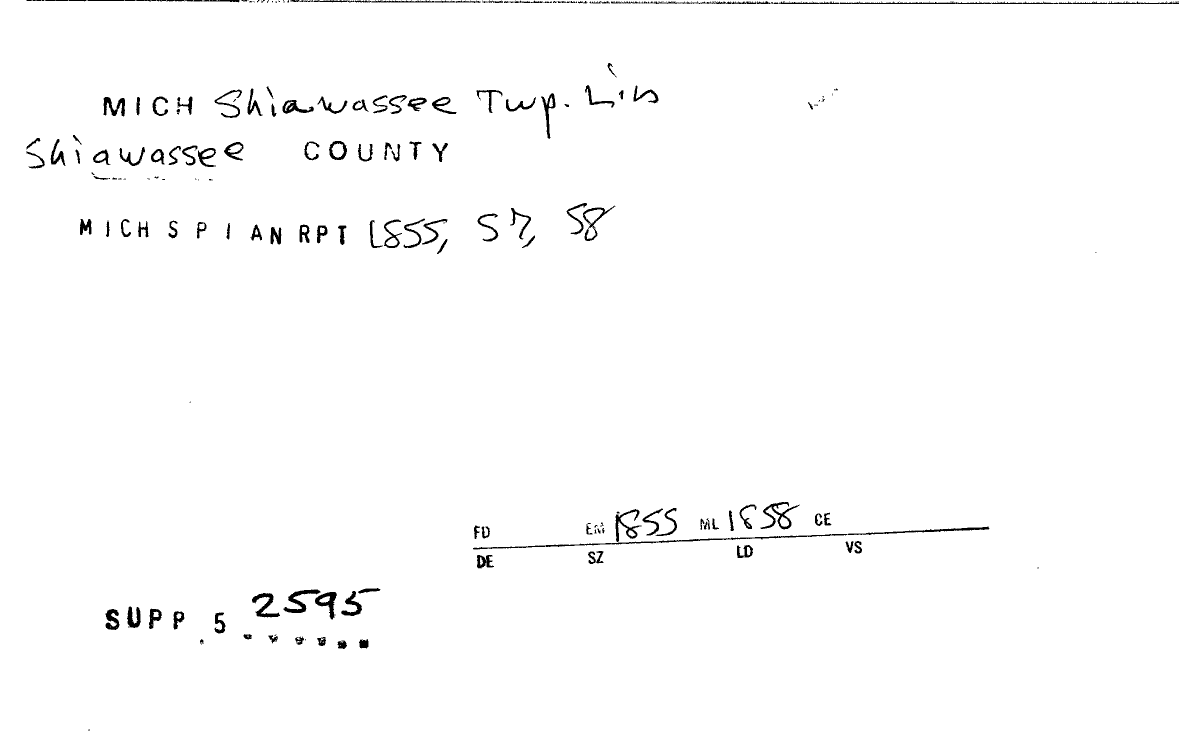 MICH Shiawassee Twp. Lib
Shiawassee COUNTY
MICH S P I AN RPT 1855, 57, 58
FD EM 1855 ML 1858 CE
DE SZ LD VS
SUPP. 5 2595